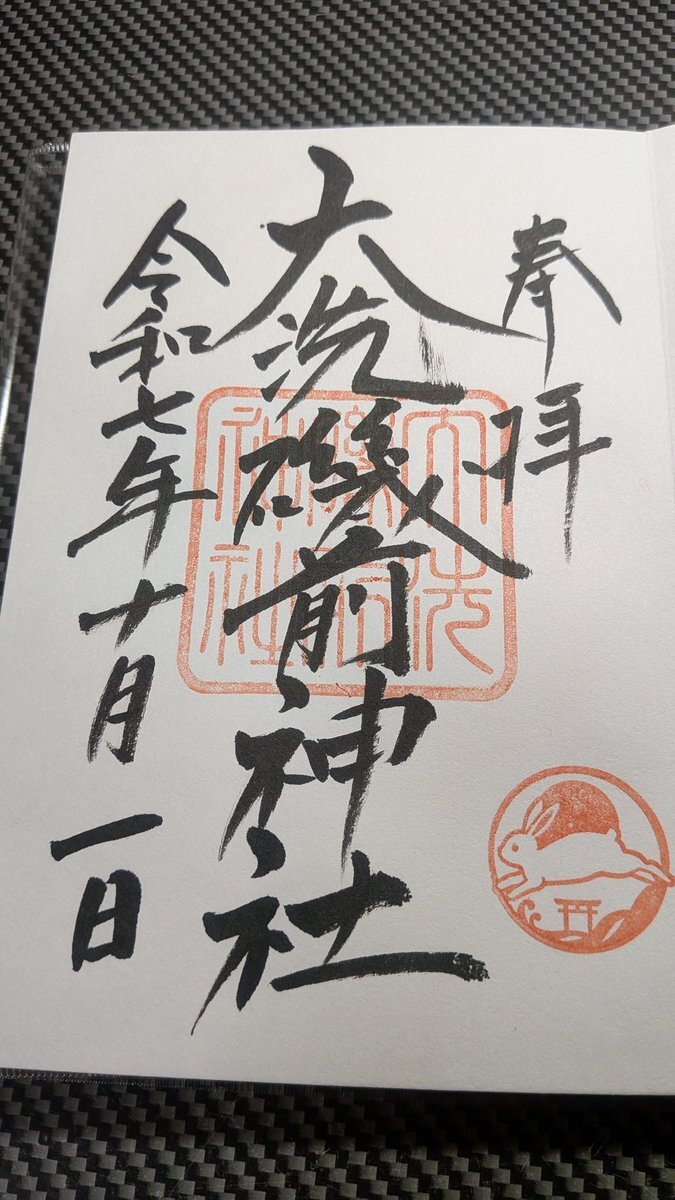 奉拝
大洗磯前神社
大洗
磯前
神社
令和七年十月一日